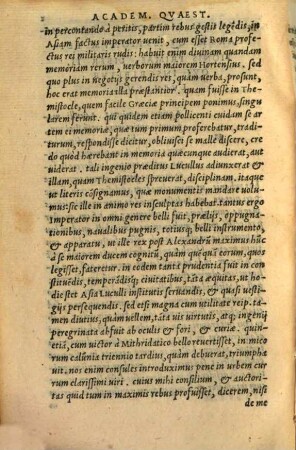 2 ACADEM. QVAEST.
in percontando à peritis, partim rebus gestis legẽdis, in
Asiam factus imperator uenit, cum esset Roma profe-
ctus rei militaris rudis: habuit enim diuinam quandam
memoriam rerum, uerborum maiorem Hortensius. sed
quo plus in negotijs gerendis res, quàm uerba, prosunt,
hoc erat memoria illa præstantior. quam fuisse in The-
mistocle, quem facile Græciæ principem ponimus singu-
larem ferunt. qui quidem etiam pollicenti cuidam se ar-
tem ei memoriæ, quæ tum primum proferebatur, tradi-
turum, respondisse dicitur, obliuisci se malle discere, cre-
do quòd hærebant in memoria quæcunque audierat, aut
uiderat. tali ingenio præditus Lucullus adiunxerat &
illam, quam Themistocles spreuerat, disciplinam. itaque
ut literis cõsignamus, quæ monumentis mandare uolu-
mus: sic ille in animo res insculptas habebat. tantus ergo
Imperator in omni genere belli fuit, prælijs, oppugna-
tionibus, naualibus pugnis, totiusq; belli instrumento,
& apparatu, ut ille rex post Alexandrũ maximus hũc
à se maiorem ducem cognitũ, quàm quẽquã eorum, quos
legisset, fateretur. in eodem tanta prudentia fuit in con-
stituẽdis, temperãdisq; ciuitatibus, tãta æquitas, ut ho-
die stet Asia Luculli institutis seruandis, & quasi uesti-
gijs persequendis. sed etsi magna cum utilitate reip. ta-
men diutius, quàm uellem, tãta uis uirtutis, atq; ingenij
peregrinata abfuit ab oculis & fori, & curiæ. quin-
etiã, cum uictor à Mithridatico bello reuertisset, inimico
rum calũnia triennio tardius, quàm debuerat, triumpha
uit. nos enim consules introduximus pene in urbem cur
rum clarissimi uiri. cuius mihi consilium, & auctori-
tas quid tum in maximis rebus profuisset, dicerem, nisi
de me